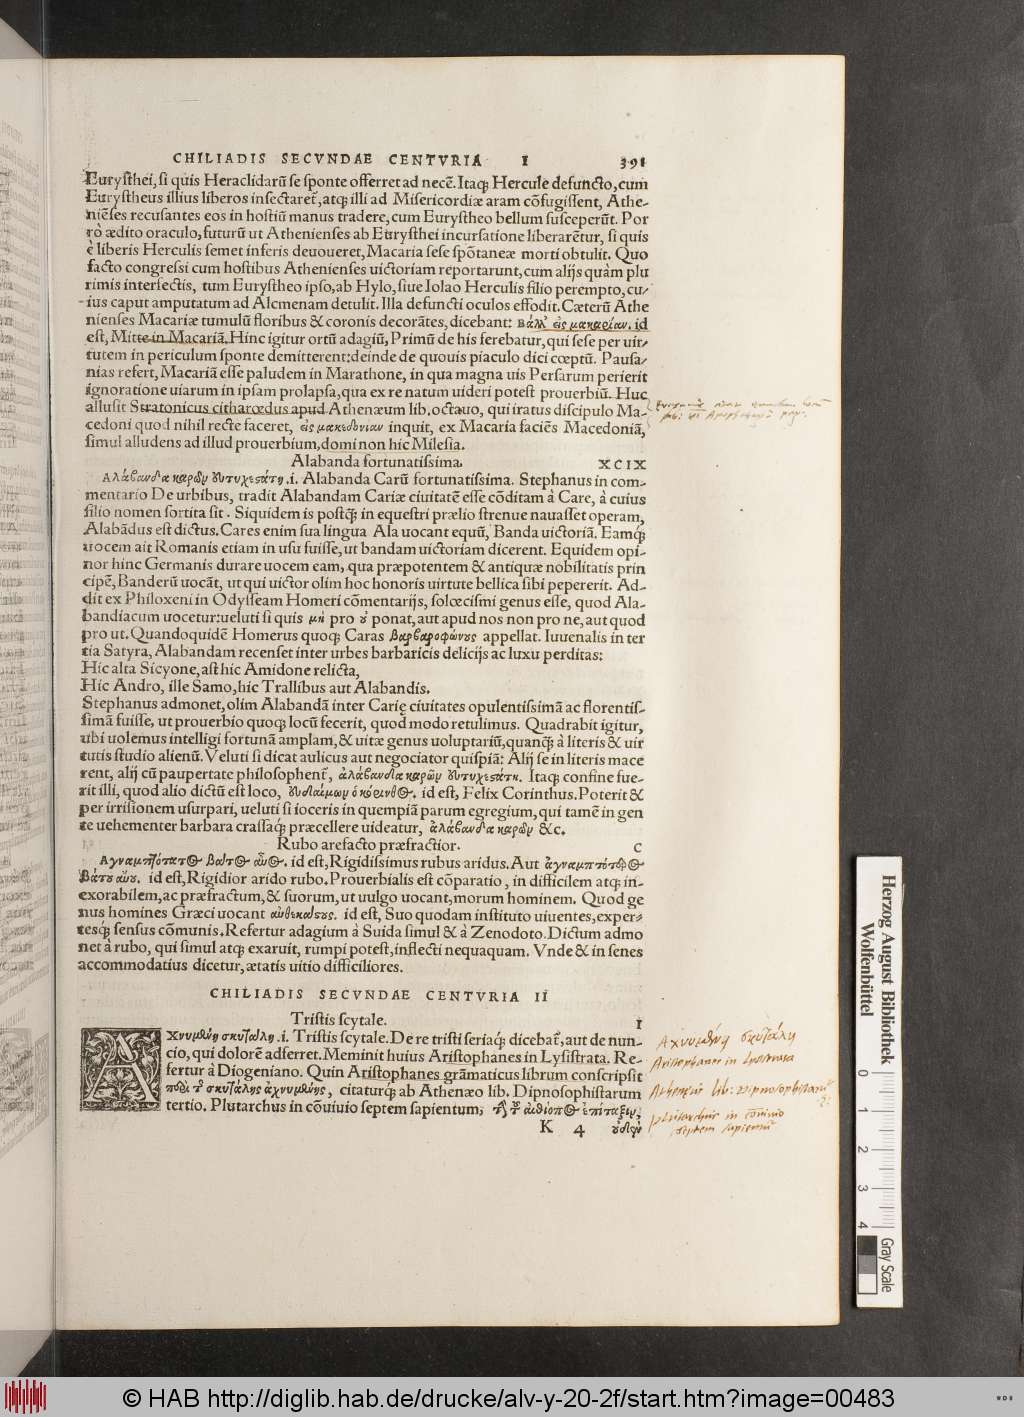 CHILIADIS SECVNDAE CENTVRIA I 391
Eurysthei, si quis Heraclidarũ se sponte offerret ad necẽ. Itaq; Hercule defuncto, cum
Eurystheus illius liberos insectaret, atq; illi ad Misericordiæ aram cõfugissent, Athe-
niẽses recusantes eos in hostiũ manus tradere, cum Eurystheo bellum susceperũt. Por
rò ædito oraculo, futurũ ut Athenienses ab Eurysthei incursatione liberarẽtur, si quis
è liberis Herculis semet inferis deuoueret, Macaria sese spõtaneæ morti obtulit. Quo
facto congressi cum hostibus Athenienses uictoriam reportarunt, cum alijs quàm plu
rimis interfectis, tum Eurystheo ipso, ab Hylo, siue Iolao Herculis filio perempto, cu-
ius caput amputatum ad Alcmenam detulit. Illa defuncti oculos effodit. Cæterũ Athe
nienses Macariæ tumulũ floribus & coronis decorãtes, dicebant: βάλλ᾽ εἰς μακαρίαν. id
est, Mitte in Macariã. Hinc igitur ortũ adagiũ, Primũ de his ferebatur, qui sese per uir-
tutem in periculum sponte demitterent: deinde de quouis piaculo dici cœptũ. Pausa-
nias refert, Macariã esse paludem in Marathone, in qua magna uis Persarum perierit
ignoratione uiarum in ipsam prolapsa, qua ex re natum uideri potest prouerbiũ. Huc
allusit Stratonicus citharœdus apud Athenæum lib. octauo, qui iratus discipulo Ma-
cedoni quod nihil recte faceret, εἰς μακεδονίαν inquit, ex Macaria faciẽs Macedoniã,
simul alludens ad illud prouerbium, domi non hic Milesia.
Alabanda fortunatissima. XCIX
Αλάβανδα καρῶν εὐτυχεστάτη .i. Alabanda Carũ fortunatissima. Stephanus in com-
mentario De urbibus, tradit Alabandam Cariæ ciuitatẽ esse cõditam à Care, à cuius
filio nomen sortita sit. Siquidem is postq̃ in equestri prælio strenue nauasset operam,
Alabãdus est dictus. Cares enim sua lingua Ala uocant equũ, Banda uictoriã. Eamq;
uocem ait Romanis etiam in usu fuisse, ut bandam uictoriam dicerent. Equidem opi-
nor hinc Germanis durare uocem eam, qua præpotentem & antiquæ nobilitatis prin
cipẽ, Banderũ uocãt, ut qui uictor olim hoc honoris uirtute bellica sibi pepererit. Ad-
dit ex Philoxeni in Odysseam Homeri cõmentarijs, solœcismi genus esse, quod Ala-
bandiacum uocetur: ueluti si quis μὴ pro οὐ ponat, aut apud nos non pro ne, aut quod
pro ut. Quandoquidẽ Homerus quoq; Caras βαρβαροφώνους appellat. Iuuenalis in ter
tia Satyra, Alabandam recenset inter urbes barbaricis delicijs ac luxu perditas:
Hic alta Sicyone, ast hic Amidone relicta,
Hic Andro, ille Samo, hic Trallibus aut Alabandis.
Stephanus admonet, olim Alabandã inter Carię ciuitates opulentissimã ac florentis-
simã fuisse, ut prouerbio quoq; locũ fecerit, quod modo retulimus. Quadrabit igitur,
ubi uolemus intelligi fortunã amplam, & uitæ genus uoluptariũ, quanq̃ à literis & uir
tutis studio alienũ. Veluti si dicat aulicus aut negociator quispiã: Alij se in literis mace
rent, alij cũ paupertate philosophent, ἀλάβανδα καρῶν εὐτυχεστάτη. Itaq; confine fue-
rit illi, quod alio dictũ est loco, εὐδαίμων ὁ κόρινθος. id est, Felix Corinthus. Poterit &
per irrisionem usurpari, ueluti si ioceris in quempiã parum egregium, qui tamẽ in gen
te uehementer barbara crassaq; præcellere uideatur, ἀλάβανδα καρῶν &c.
Rubo arefacto præfractior. C
Αγναμπτότατος βάτος αὖος. id est, Rigidissimus rubus aridus. Aut ἀγναμπτότερος
βάτου αὔου. id est, Rigidior arido rubo. Prouerbialis est cõparatio, in difficilem atq; in-
exorabilem, ac præfractum, & suorum, ut uulgo uocant, morum hominem. Quod ge
nus homines Græci uocant αὐθεκάστους. id est, Suo quodam instituto uiuentes, exper-
tesq; sensus cõmunis. Refertur adagium à Suida simul & à Zenodoto. Dictum admo
net à rubo, qui simul atq; exaruit, rumpi potest, inflecti nequaquam. Vnde & in senes
accommodatius dicetur, ætatis uitio difficiliores.
CHILIADIS SECVNDAE CENTVRIA II
Tristis scytale. I
Αχνυμένη σκυτάλη .i. Tristis scytale. De re tristi seriaq; dicebat, aut de nun-
cio, qui dolorẽ adferret. Meminit huius Aristophanes in Lysistrata. Re-
fertur à Diogeniano. Quin Aristophanes grãmaticus librum conscripsit
περὶ τῆς σκυτάλης ἀχνυμένης, citaturq; ab Athenæo lib. Dipnosophistarum
tertio. Plutarchus in cõuiuio septem sapientum, τὴν τοῦ αἰθίοπος ἐπίταξιν,
K 4 οὐδὲν
Αχνυμένη σκυτάλη
Aristophanes in Lysistrata
Athenæus lib: Dipnosophistarũ
3:
Plutarchus in cõuiuio
septem sapientũ
Herzog August Bibliothek
Wolfenbüttel
0 1 2 3 4
Gray Scale
© HAB http://diglib.hab.de/drucke/alv-y-20-2f/start.htm?image=00483